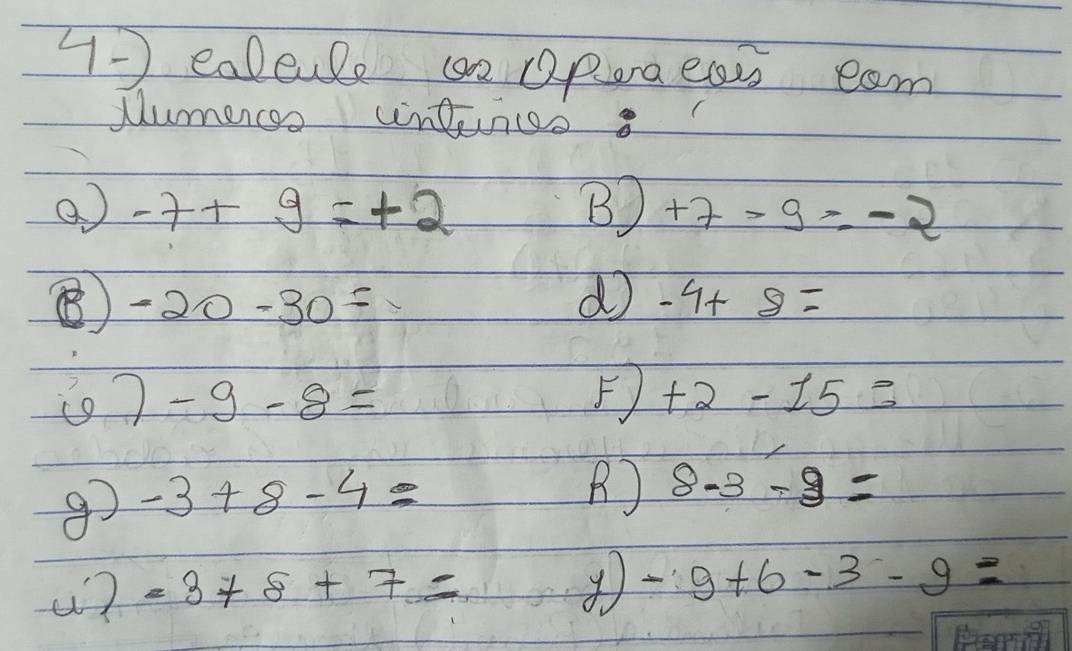 4-) calcule as Operacoẽs com
Numeros inteiros :
a) -7 + 9 = +2 B) +7 - 9 = -2
C) -20 - 30 = d) -4 + 8 =
e) -9 - 8 = F) +2 - 15 =
g) -3 + 8 - 4 = h) 8 - 3 - 9 =
i) -3 + 8 + 7 = y) -9 + 6 - 3 - 9 =